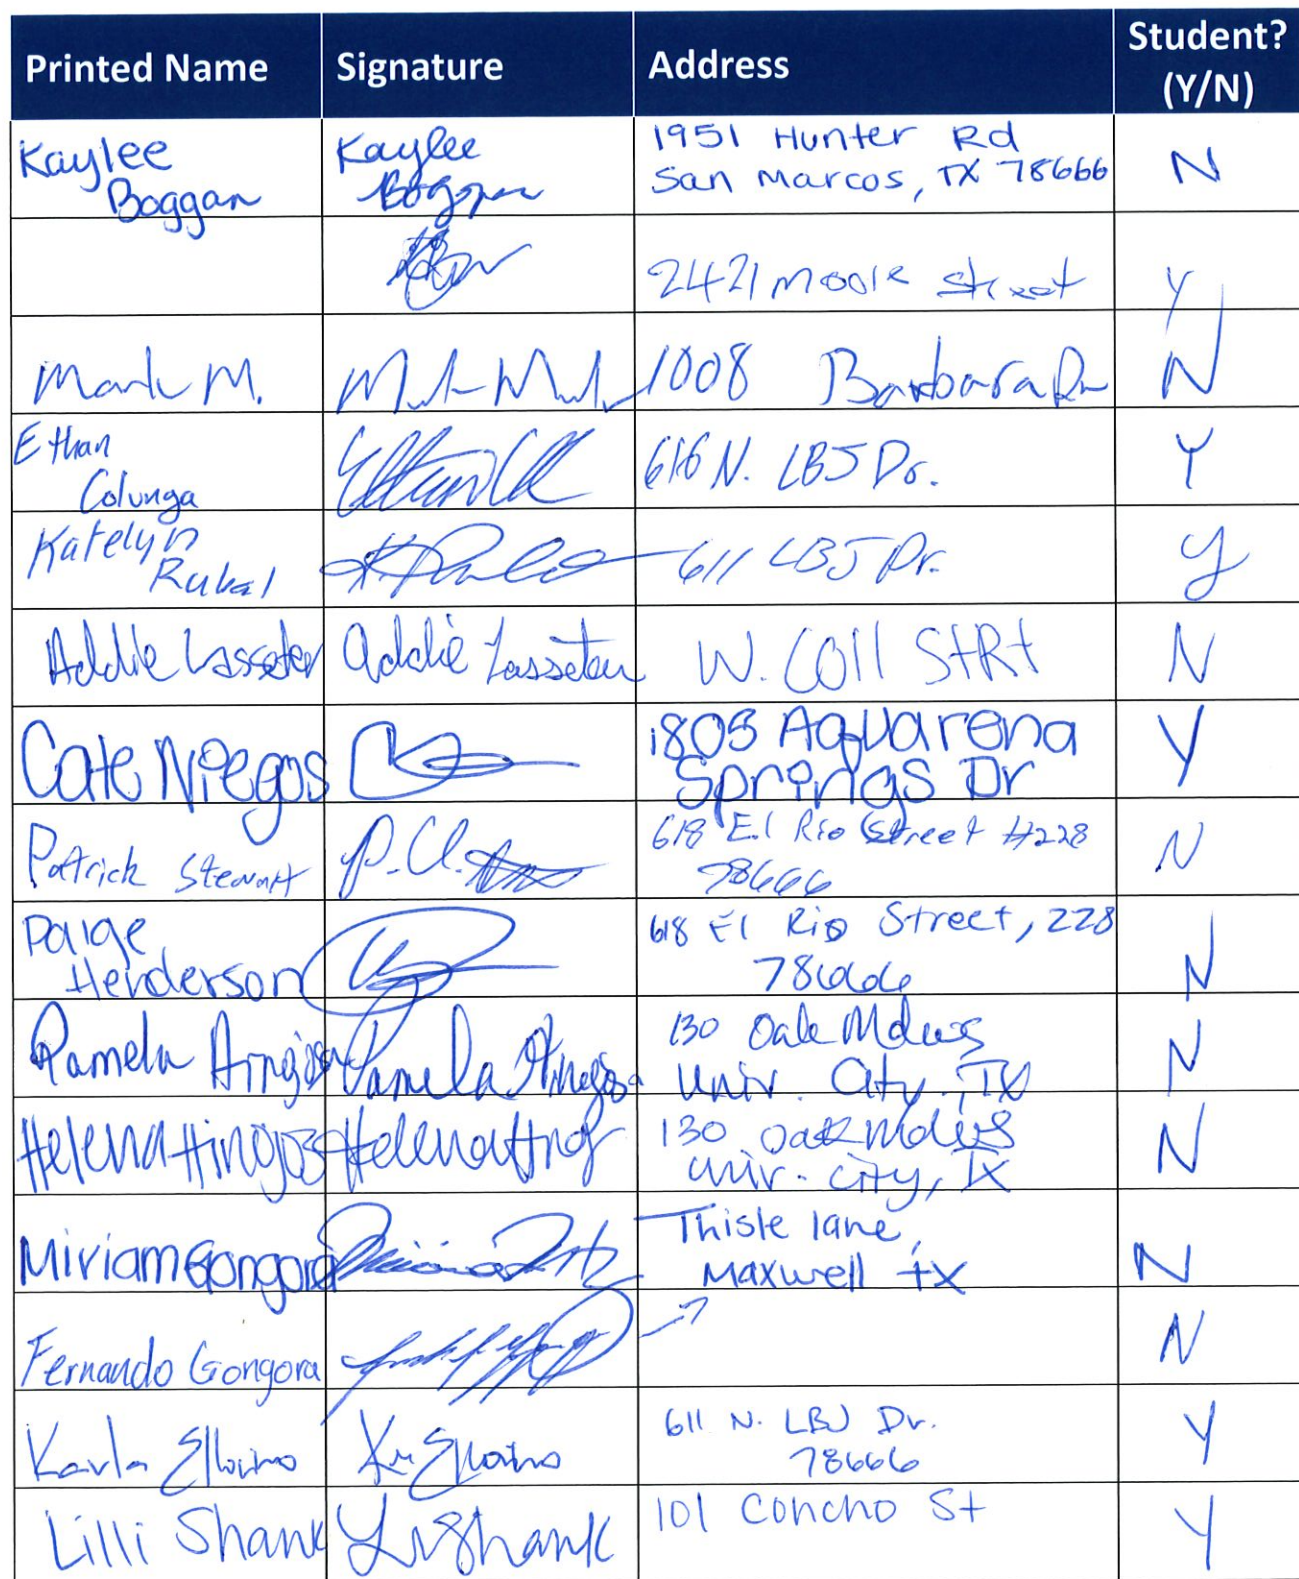 Printed Name Signature Address Student? (Y/N)
Kaylee Boggan Kaylee Boggan 1951 Hunter Rd San Marcos, TX 78666 N
2421 Moore Street Y
Mark M. 1008 Barbara Dr N
Ethan Colunga 616 N. LBJ Dr. Y
Katelyn Rubal 611 LBJ Dr. y
Addie Lasseter Addie Lasseter W. Coll StRt N
Cate Niegos Springs Dr Y
Patrick Stewart 618 E.l Rio Street #228 78666 N
Paige Henderson 618 El Rio Street, 228 78666 N
Pamela Pamela 130 Oak Mdws Univ. City, TX N
Helena Helena 130 Oak Mdws Univ. City, TX N
Miriam Gongora Thisle lane, Maxwell tx N
Fernando Gongora N
Karla 611 N. LBJ Dr. 78666 Y
Lilli Shank Shank 101 Concho St Y